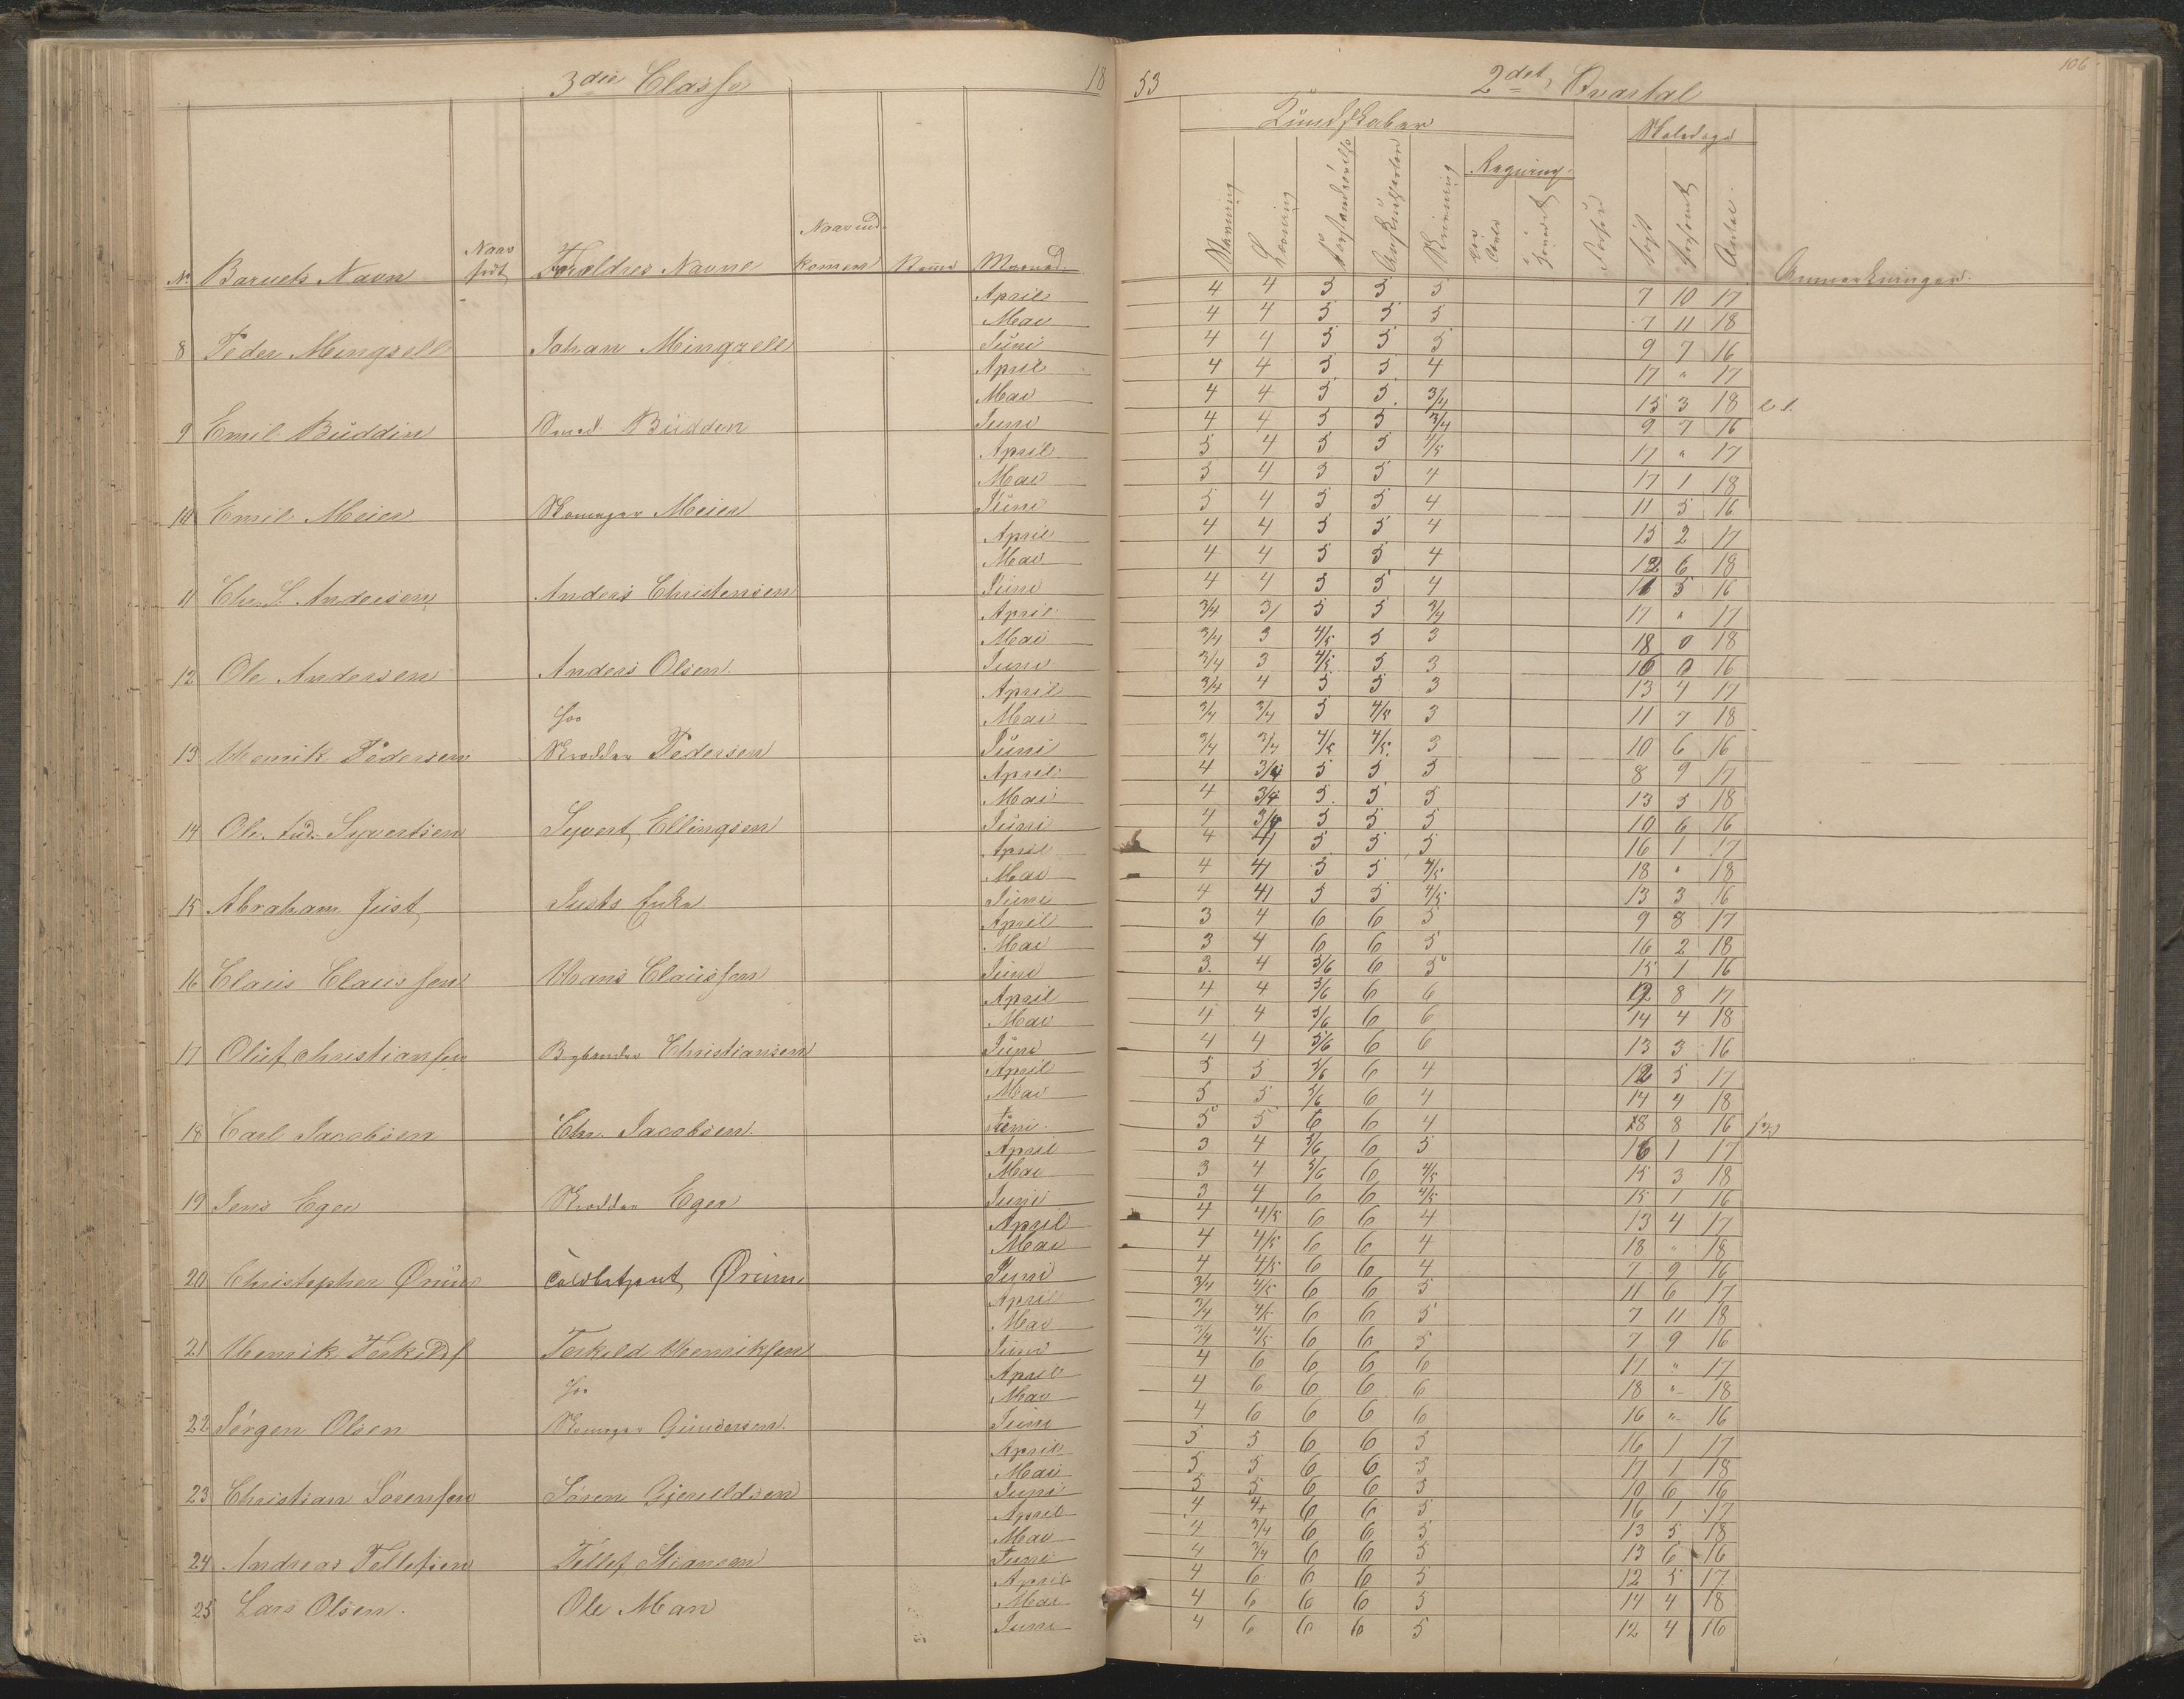 106
3die Classe 18 53 2det Qvartal
Kundskaber Skoledage
No Barnets Navn Naar født Forældres Navne Naar ind- kommen Maaned Skrivning Læsning Forstandsøvelse Regning Forsømt Antal Anmerkninger
April 4 4 5 5 5 7 10 17
Mai 4 4 5 5 5 7 11 18
8 Peder Mingzell Johan Mingzell Juni 4 4 5 5 5 9 7 16
April 4 4 5 5 4 17 " 17
Mai 4 4 5 5 3/4 15 3 18
9 Emil Buddin Smed Budden Juni 4 4 5 5 3/4 9 7 16
April 5 4 5 5 4/5 17 " 17
Mai 5 4 5 5 4 17 1 18
10 Emil Meier Skomager Meier Juni 5 4 5 5 4 11 5 16
April 4 4 5 5 4 15 2 17
Mai 4 4 5 5 4 12 6 18
11 Chr. S. Andersen Anders Christensen Juni 4 4 5 5 4 11 5 16
April 3/4 3/ 5 5 3/4 17 " 17
Mai 3/4 3 4/5 5 3 18 0 18
12 Ole Andersen Anders Olsen Juni 3/4 3 4/5 5 3 16 0 16
April 3/4 4 5 5 3 13 4 17
Mai 3/4 3/4 5 4/5 3 11 7 18
13 Henrik Pedersen Skrædder Pedersen Juni 3/4 3/4 4/5 4/5 3 10 6 16
April 4 3/4 5 5 5 8 9 17
Mai 4 3/4 5 5 5 13 5 18
14 Ole Lud. Syvertsen Syvert Ellingsen Juni 4 3/4 5 5 5 10 6 16
April 4 4 5 5 5 16 1 17
Mai 4 4 5 5 4/5 18 " 18
15 Abraham Just Justs Enke Juni 4 4 5 5 4/5 13 3 16
April 3 4 6 6 5 9 8 17
Mai 3 4 6 6 5 16 2 18
16 Claus Claussen Hans Claussen Juni 3 4 5/6 6 5 15 1 16
April 4 4 5/6 6 6 8 17
Mai 4 4 5/6 6 6 14 4 18
17 Oluf Christiansen Christiansen Juni 4 4 5/6 6 6 13 3 16
April 5 5 5/6 6 4 12 5 17
Mai 5 5 5/6 6 4 14 4 18
18 Carl Jacobsen Chr. Jacobsen Juni 5 5 6 6 4 8 8 16
April 3 4 5/6 6 5 16 1 17
Mai 3 4 5/6 6 4/5 15 3 18
19 Jens Eger Skrædder Eger Juni 3 4 6 6 4/5 15 1 16
April 4 4/5 6 6 4 13 4 17
Mai 4 4/5 6 6 4 18 " 18
20 Christopher Ørum Ørum Juni 4 4/5 6 6 4 7 9 16
April 3/4 4/5 6 6 5 11 6 17
Mai 3/4 4/5 6 6 5 7 11 18
21 Henrik Terkelds Terkeld Henriksen Juni 3/4 4/5 6 6 5 7 9 16
April 4 6 6 6 6 17 " 17
Mai 4 6 6 6 6 18 " 18
22 Jørgen Olsen Skomager Gundersen Juni 4 6 6 6 6 16 " 16
April 5 5 6 6 5 16 1 17
Mai 5 5 6 6 5 17 1 18
23 Christian Sørensen Søren Gjeruldsen Juni 5 5 6 6 5 10 6 16
April 4 4+ 6 6 5 16 1 17
Mai 4 3/4 6 6 5 13 5 18
24 Andreas Tellefsen Tellef Stiansen Juni 4 3/4 6 6 5 13 6 16
April 4 6 6 6 5 12 5 17
25 Lars Olsen Ole Man Mai 4 6 6 6 5 14 4 18
Juni 4 6 6 6 5 12 4 16